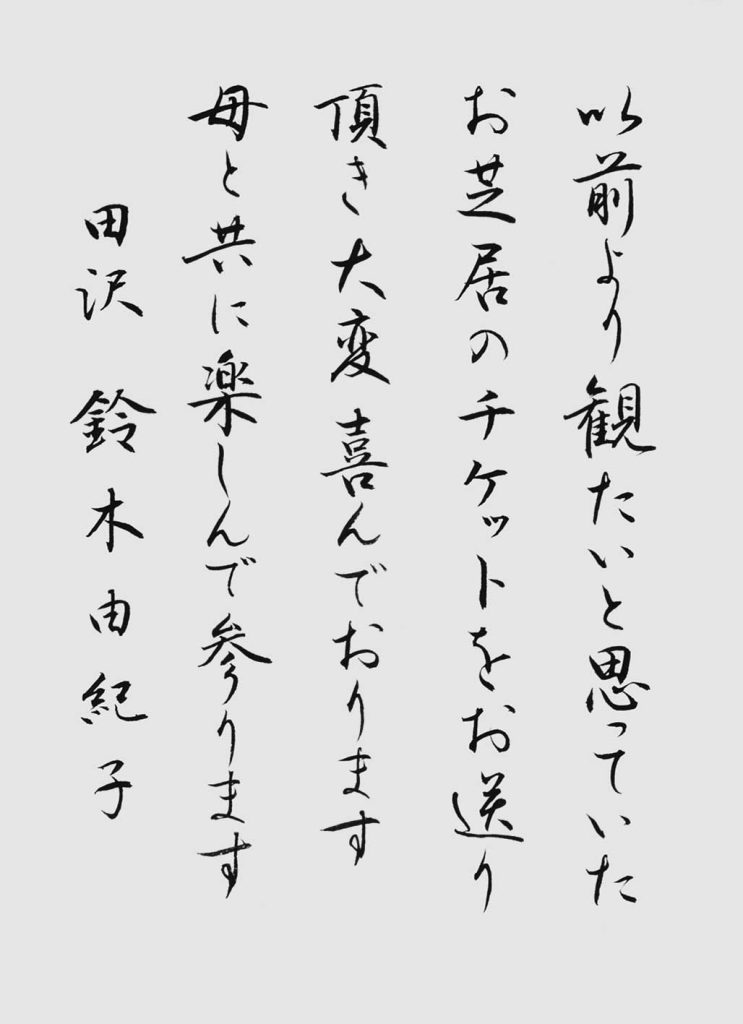 以前より観たいと思っていた
お芝居のチケットをお送り
頂き大変喜んでおります
母と共に楽しんで参ります
田沢 鈴木由紀子